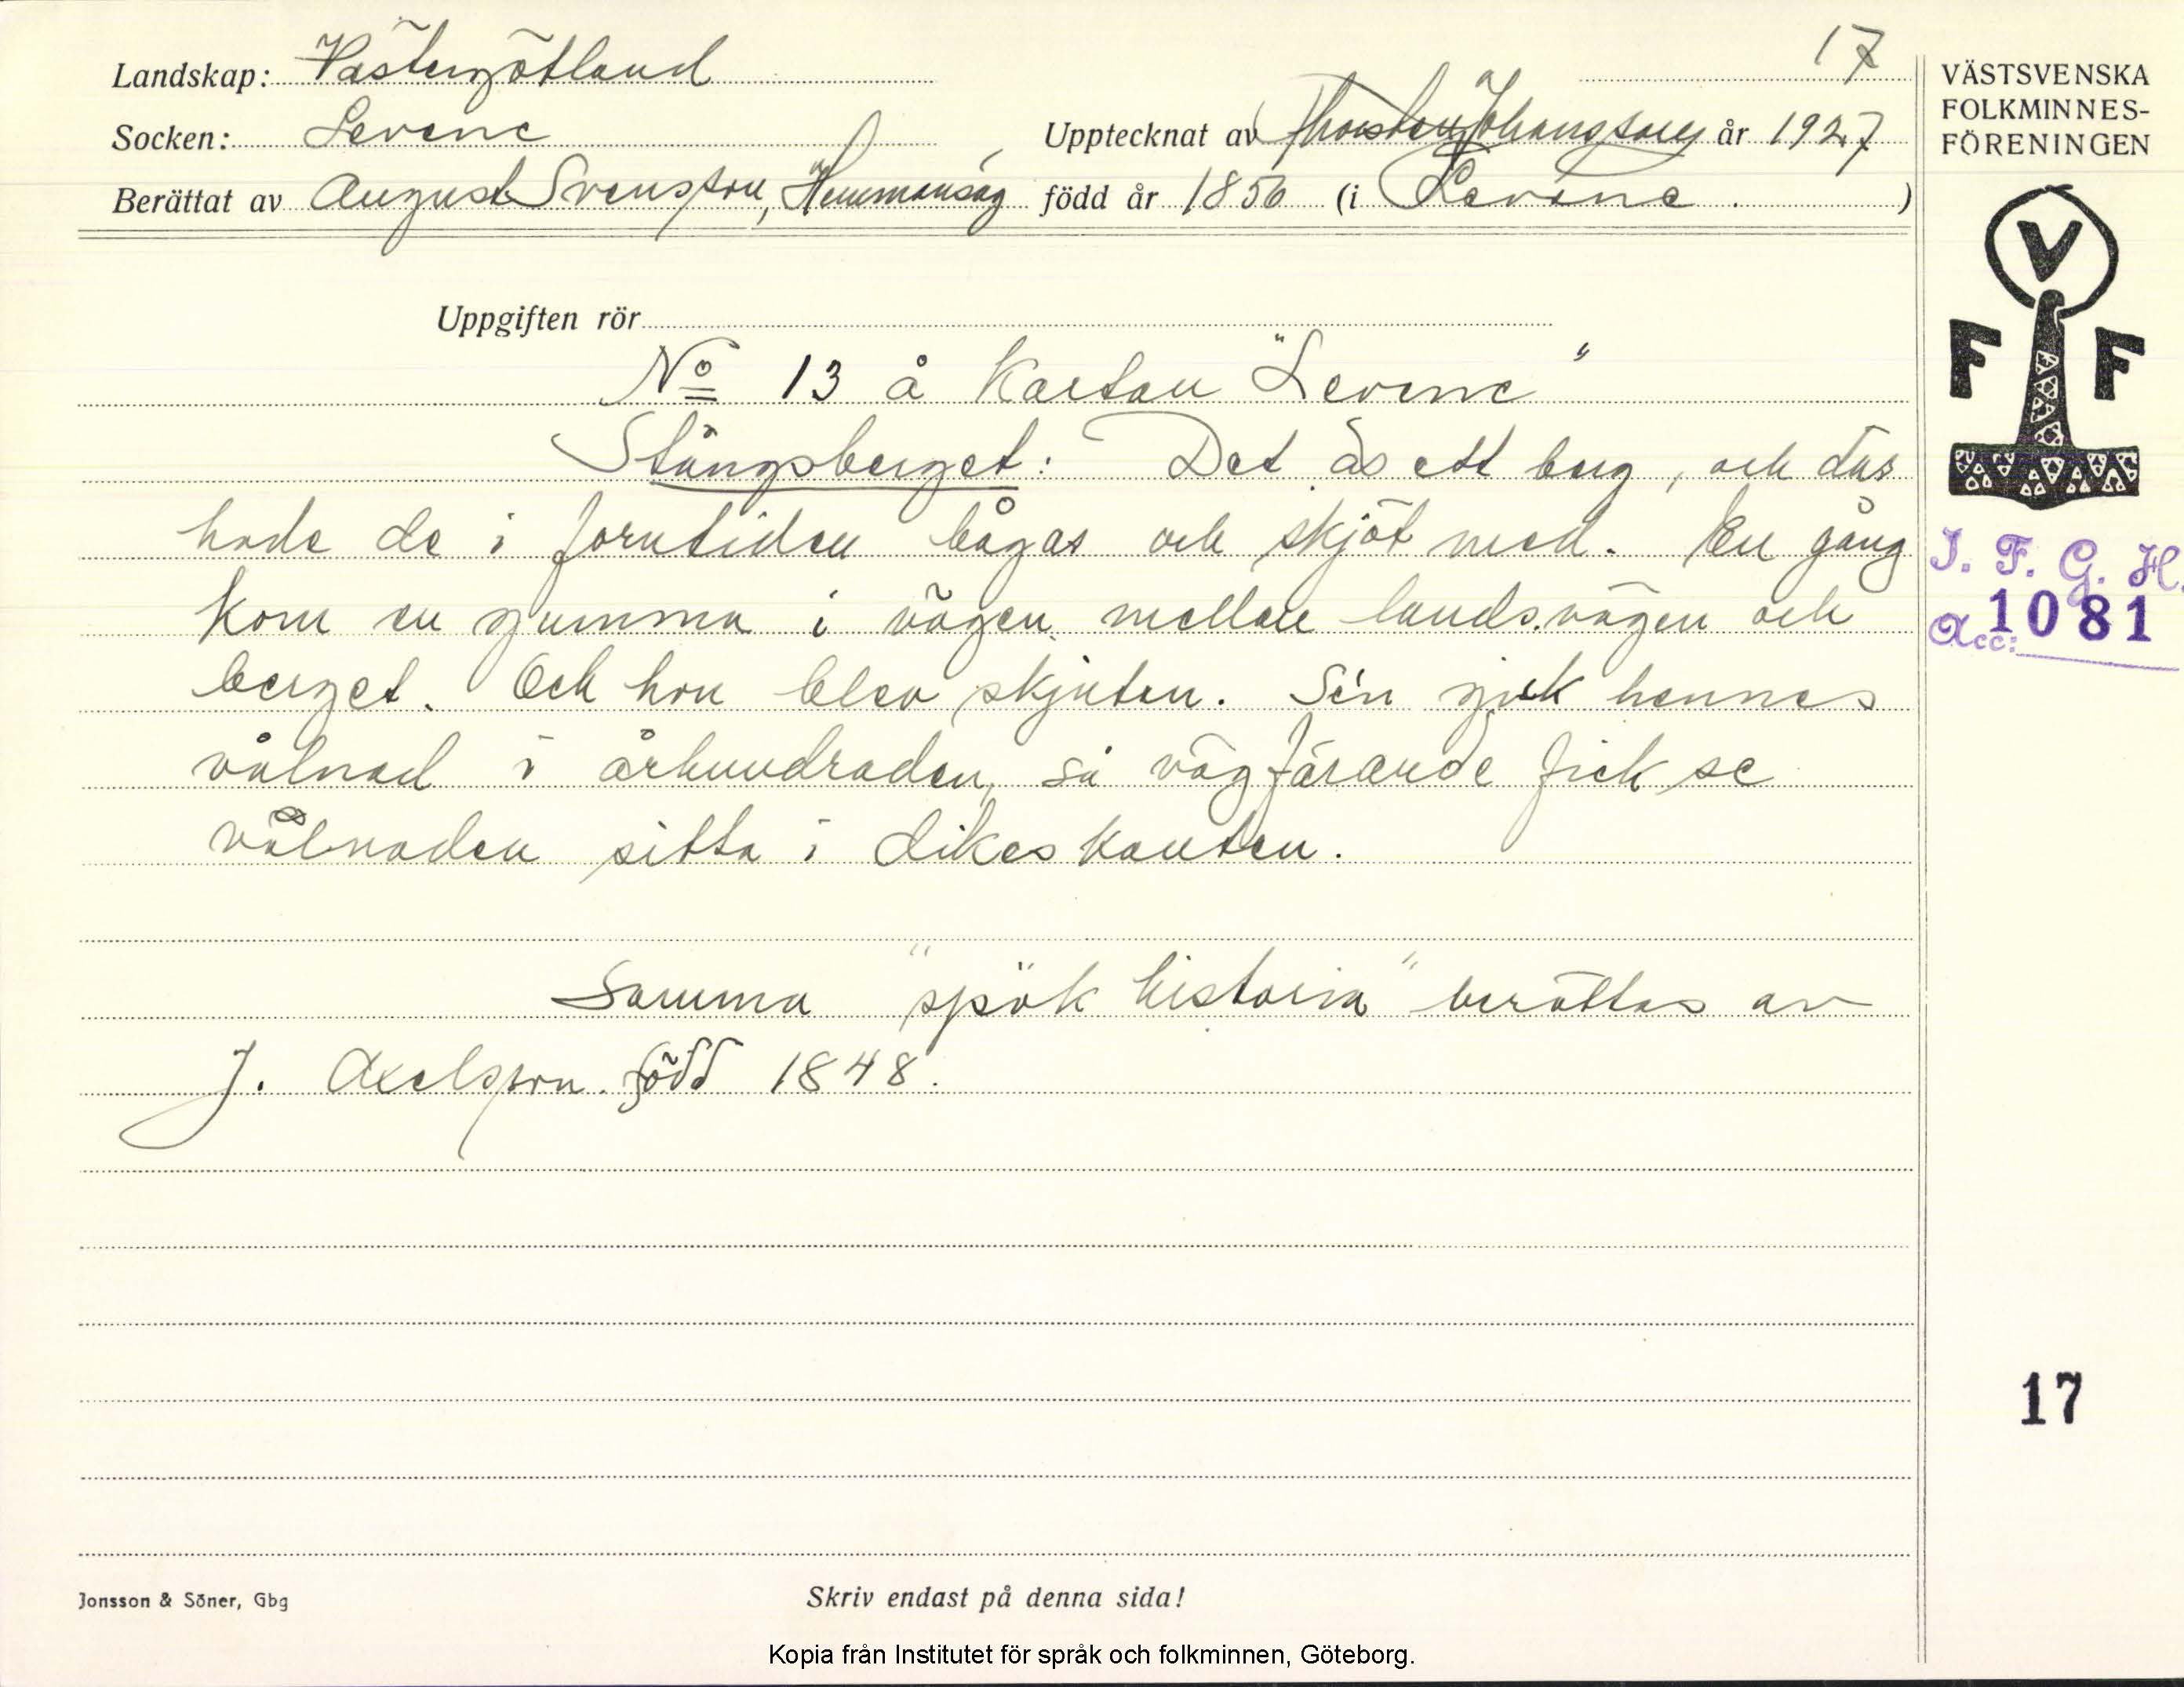 17
Landskap: Västergötland
Socken: Levene
Upptecknat av Thorsten Johansson år 1927
Berättat av August Svensson, Hemmansäg född år 1856 (i Levene.)
VÄSTSVENSKA
FOLKMINNES-
FÖRENINGEN
V
F F
Uppgiften rör
No 13 å Kartan "Levene"
Stångsberget: Det äs ett berg, och där
hade de i forntiden bågas och skjöt med. En gång
kom en gumma i vägen mellan landsvägen och
berget. Och hon blev skjuten. Se'n gick hennes
vålnad i århundraden, så vägfarande fick se
vålnaden sitta i dikeskanten.
Samma "spökhistoria" berättas av
J. Axelsson. född 1848.
I. F. G. H.
Acc: 1081
17
Jonsson & Söner, Gbg
Skriv endast på denna sida!
Kopia från Institutet för språk och folkminnen, Göteborg.